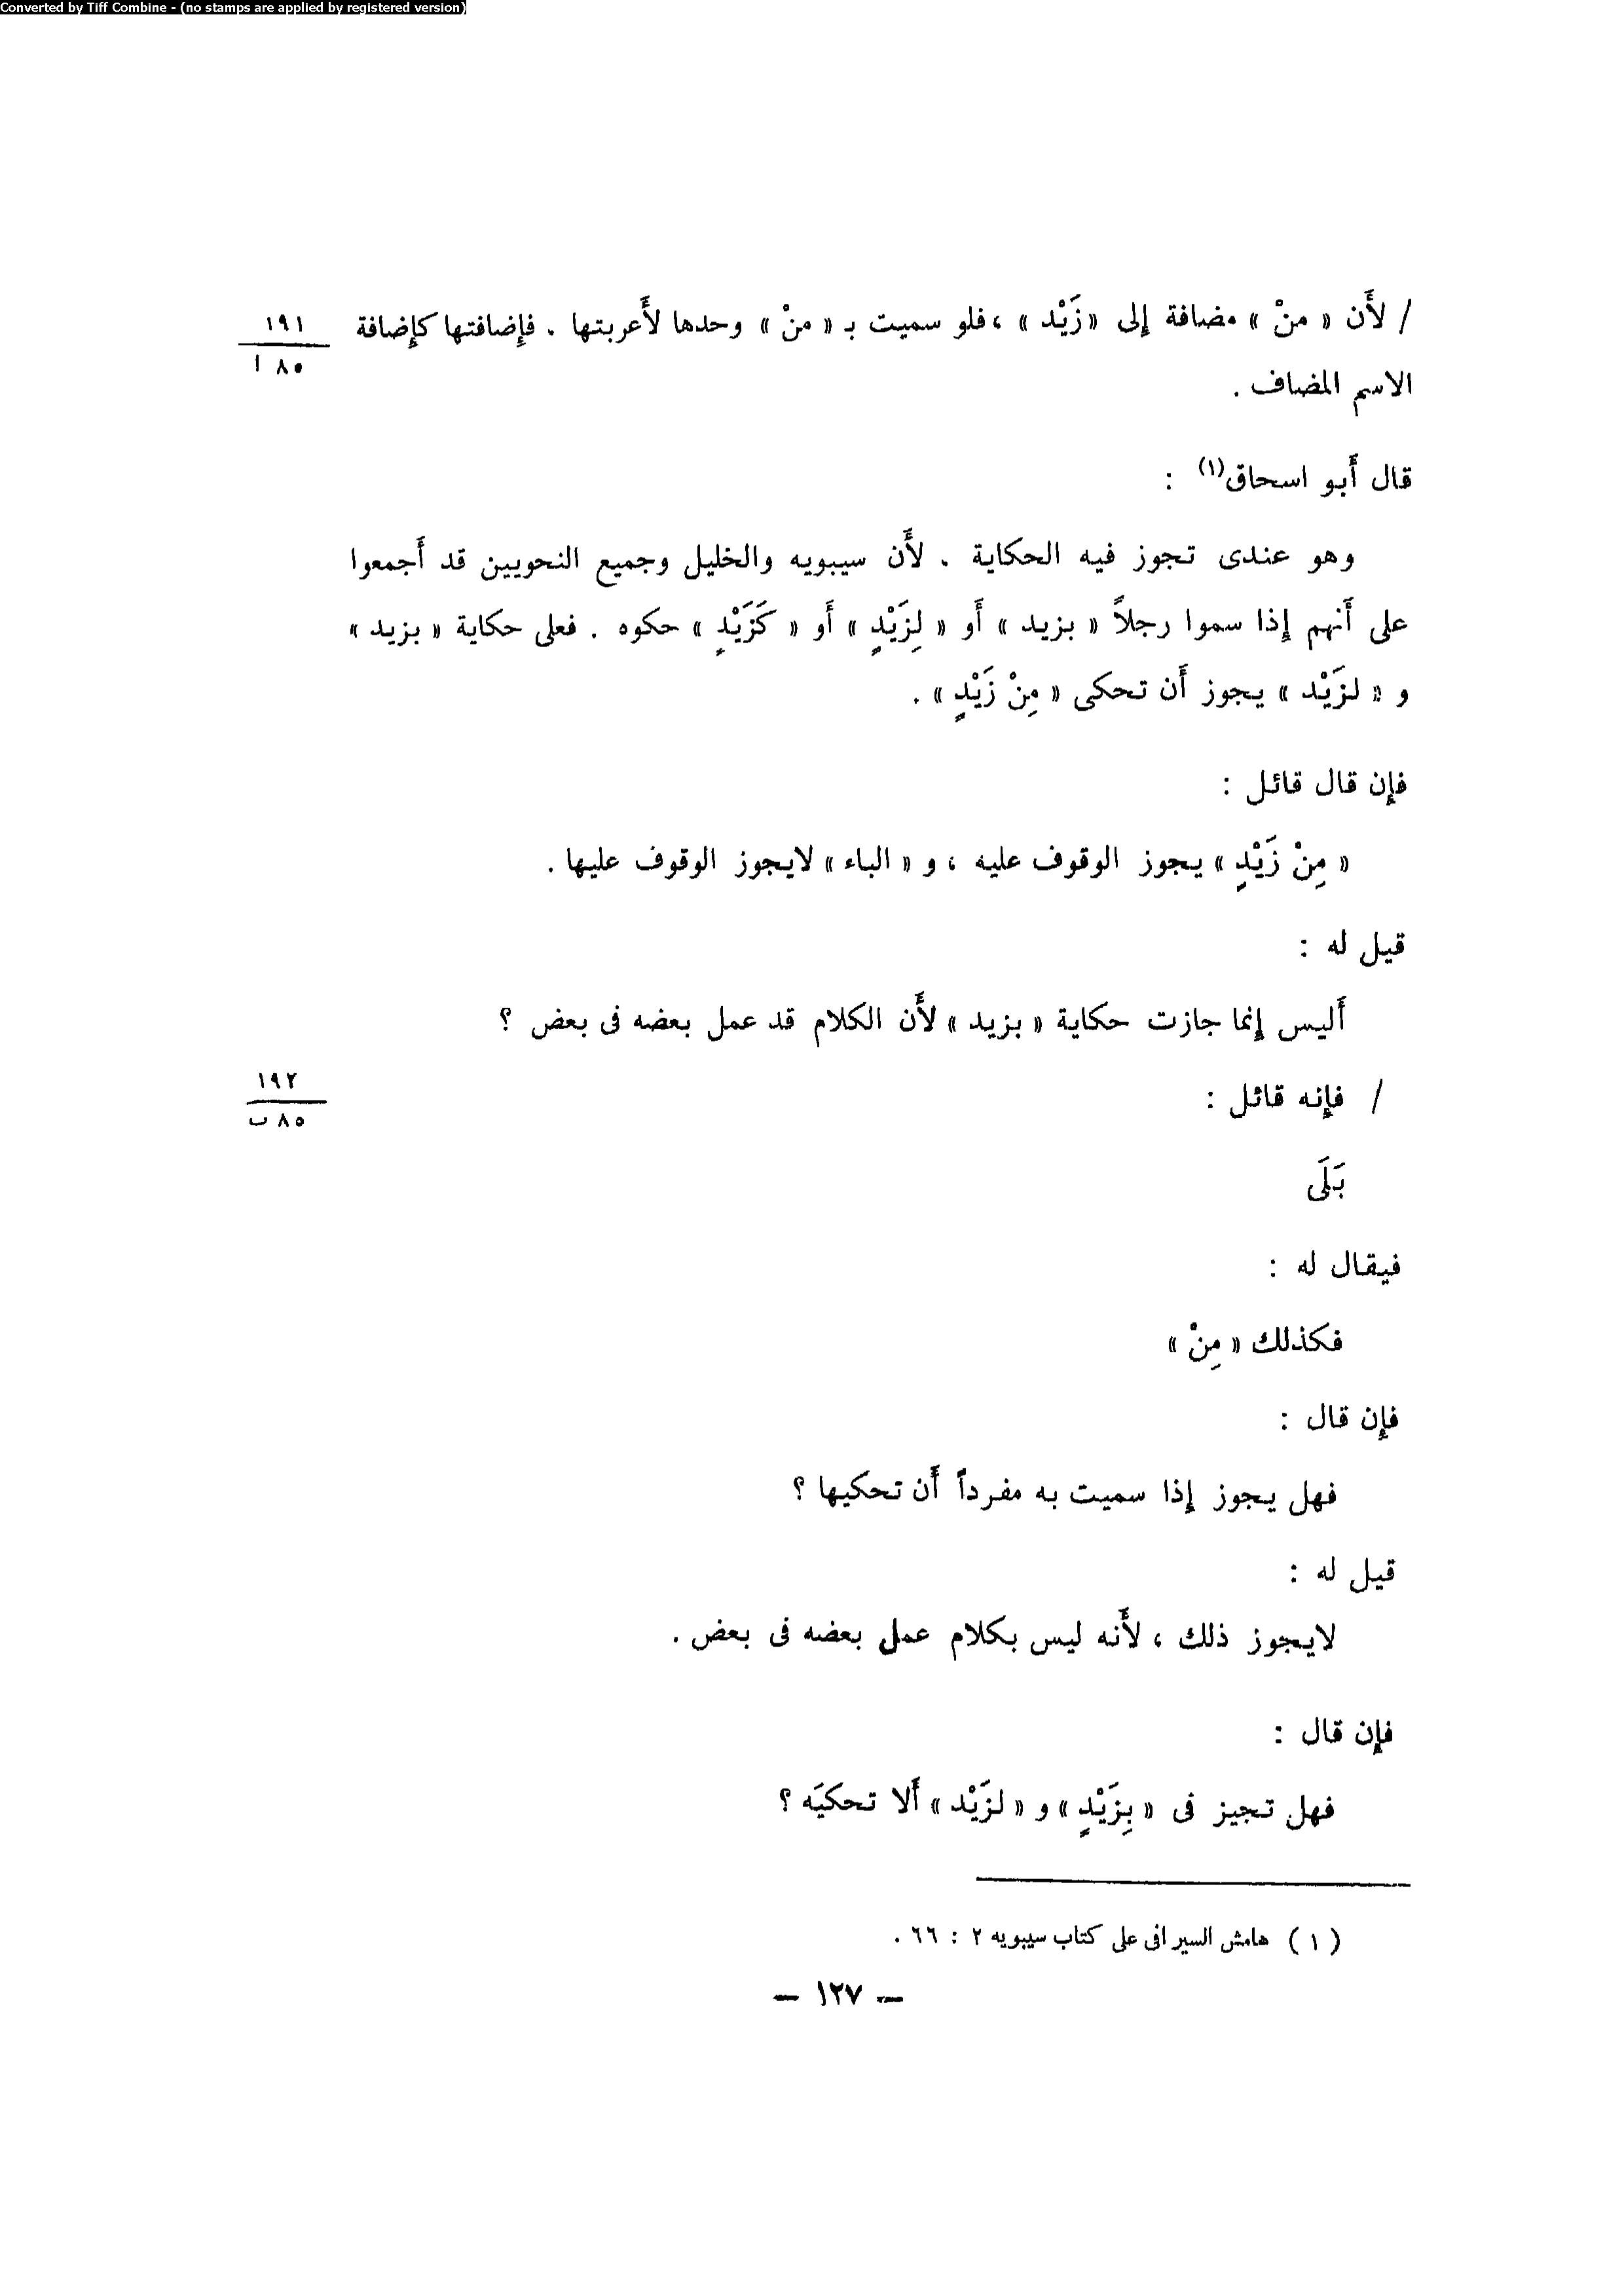 Converted by Tiff Combine - (no stamps are applied by registered version)
/ لأَن « منْ » مضافة إلى «زَيْد » ، فلو سميت بـ « منْ » وحدها لأَعربتها . فإِضافتها كإِضافة
١٩١
٨٥ ا
الاسم المضاف .
قال أَبو اسحاق(١) :
وهو عندى تجوز فيه الحكاية . لأَن سيبويه والخليل وجميع النحويين قد أَجمعوا
على أَنهم إِذا سموا رجلاً « بزيد » أَو « لِزَيْدٍ » أَو « كَزَيْدٍ » حكوه . فعلى حكاية « بزيد »
و « لزَيْد » يجوز أَن تحكى « مِنْ زَيْدٍ » .
فإِن قال قائل :
« مِنْ زَيْدٍ » يجوز الوقوف عليه ، و « الباء » لايجوز الوقوف عليها .
قيل له :
أَليس إِنما جازت حكاية « بزيد » لأَن الكلام قد عمل بعضه فى بعض ؟
/ فإِنه قائل :
١٩٢
٨٥ ب
بَلَى
فيقال له :
فكذلك « مِنْ »
فإِن قال :
فهل يجوز إِذا سميت به مفرداً أَن تحكيها ؟
قيل له :
لايجوز ذلك ، لأَنه ليس بكلام عمل بعضه فى بعض .
فإِن قال :
فهل تجيز فى « بِزَيْدٍ » و « لزَيْد » أَلا تحكيَه ؟
( ١ ) هامش السيرافى على كتاب سيبويه ٢ : ٦٦ .
— ١٢٧ —